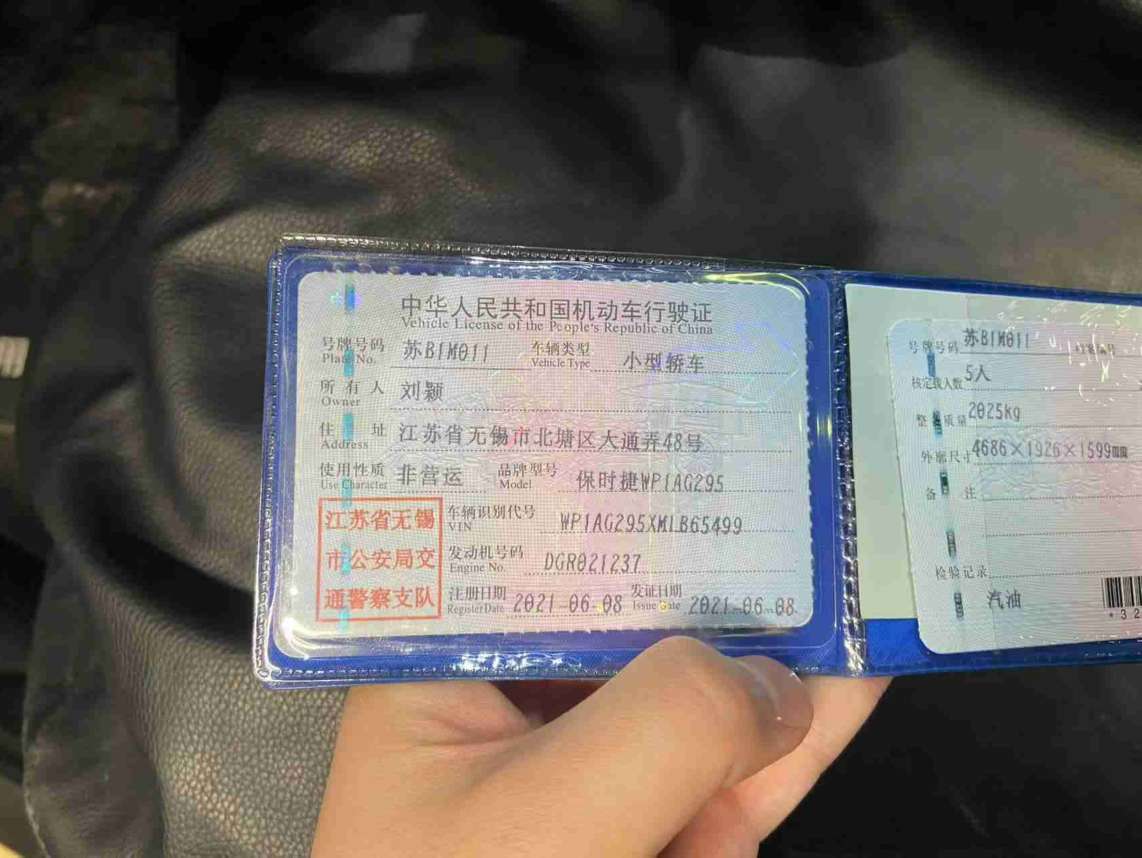 中华人民共和国机动车行驶证
Vehicle License of the People's Republic of China
号牌号码 苏B1M011 车辆类型 小型轿车
Plate No. Vehicle Type
所有人 刘颖
Owner
住址 江苏省无锡市北塘区大通弄48号
Address
使用性质 非营运 品牌型号 保时捷WP1AG295
Use Character Model
江苏省无锡
市公安局交
通警察支队
车辆识别代号 WP1AG295XMLB65499
VIN
发动机号码 DGR021237
Engine No.
注册日期 2021-06-08 发证日期 2021-06-08
Register Date Issue Date
号牌号码 苏B1M011
核定载人数 5人
整备质量 2025kg
外廓尺寸 4686×1926×1599mm
备注
检验记录
汽油
*32